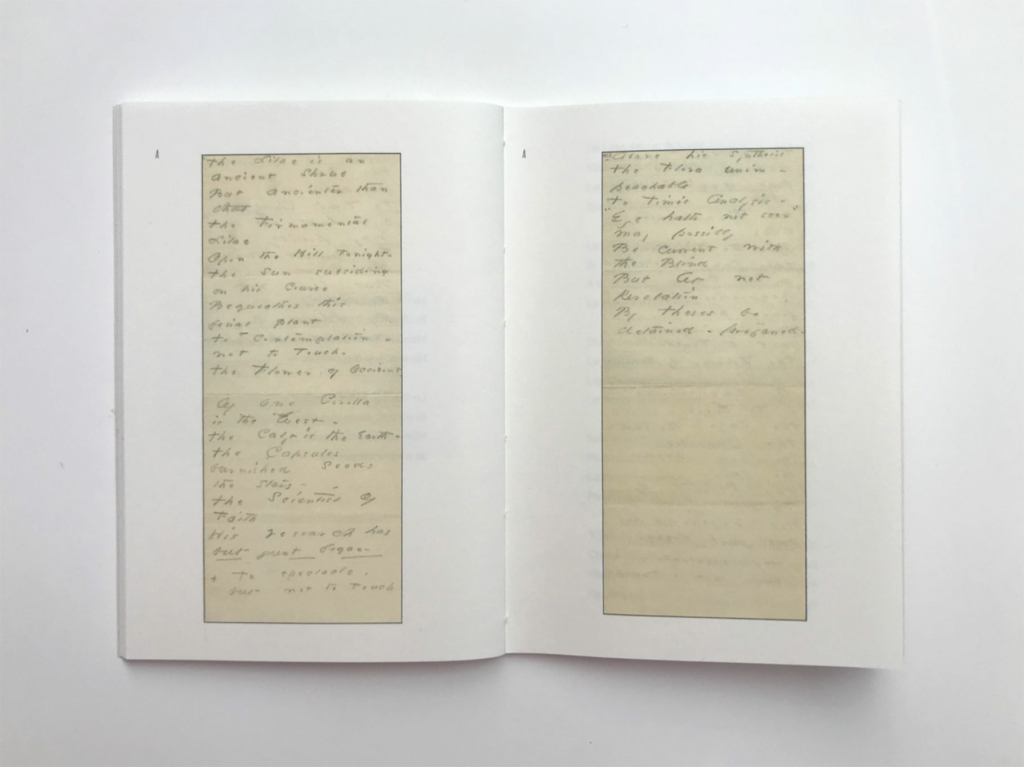 A
the Lilac is an
Ancient Shrub
But Ancienter than
that
the Firmamental
Lilac
Opon the Hill Tonight -
the Sun subsiding
on his Course
Bequeathes this
final plant
to Contemplation -
not to Touch.
the Flower of Occident
Of one Corolla
is the West -
the Calyx is the Earth -
the Capsules
burnished Seeds
the Stars -
the Scientist of
Faith
His research has
but just begun -
+ to spectacle,
but not to Touch
A
Above his Synthesis
the Flora unim -
peachable
to Time's Analysis -
"Eye hath not seen"
may possibly
Be current with
the Blind
But let not
Revelation
By theses be
detained - profaned -